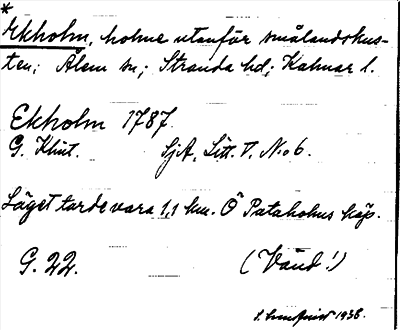 *
Ekholm, holme utanför smålandskus-
ten; Ålem sn; Stranda hd; Kalmar l.
Ekholm 1787.
G. Klint. SjA, Litt. V. No 6.
Läget torde vara 1,1 km. Ö Pataholms köp.
G. 22. (Vänd!)
S. Lundquist 1938.